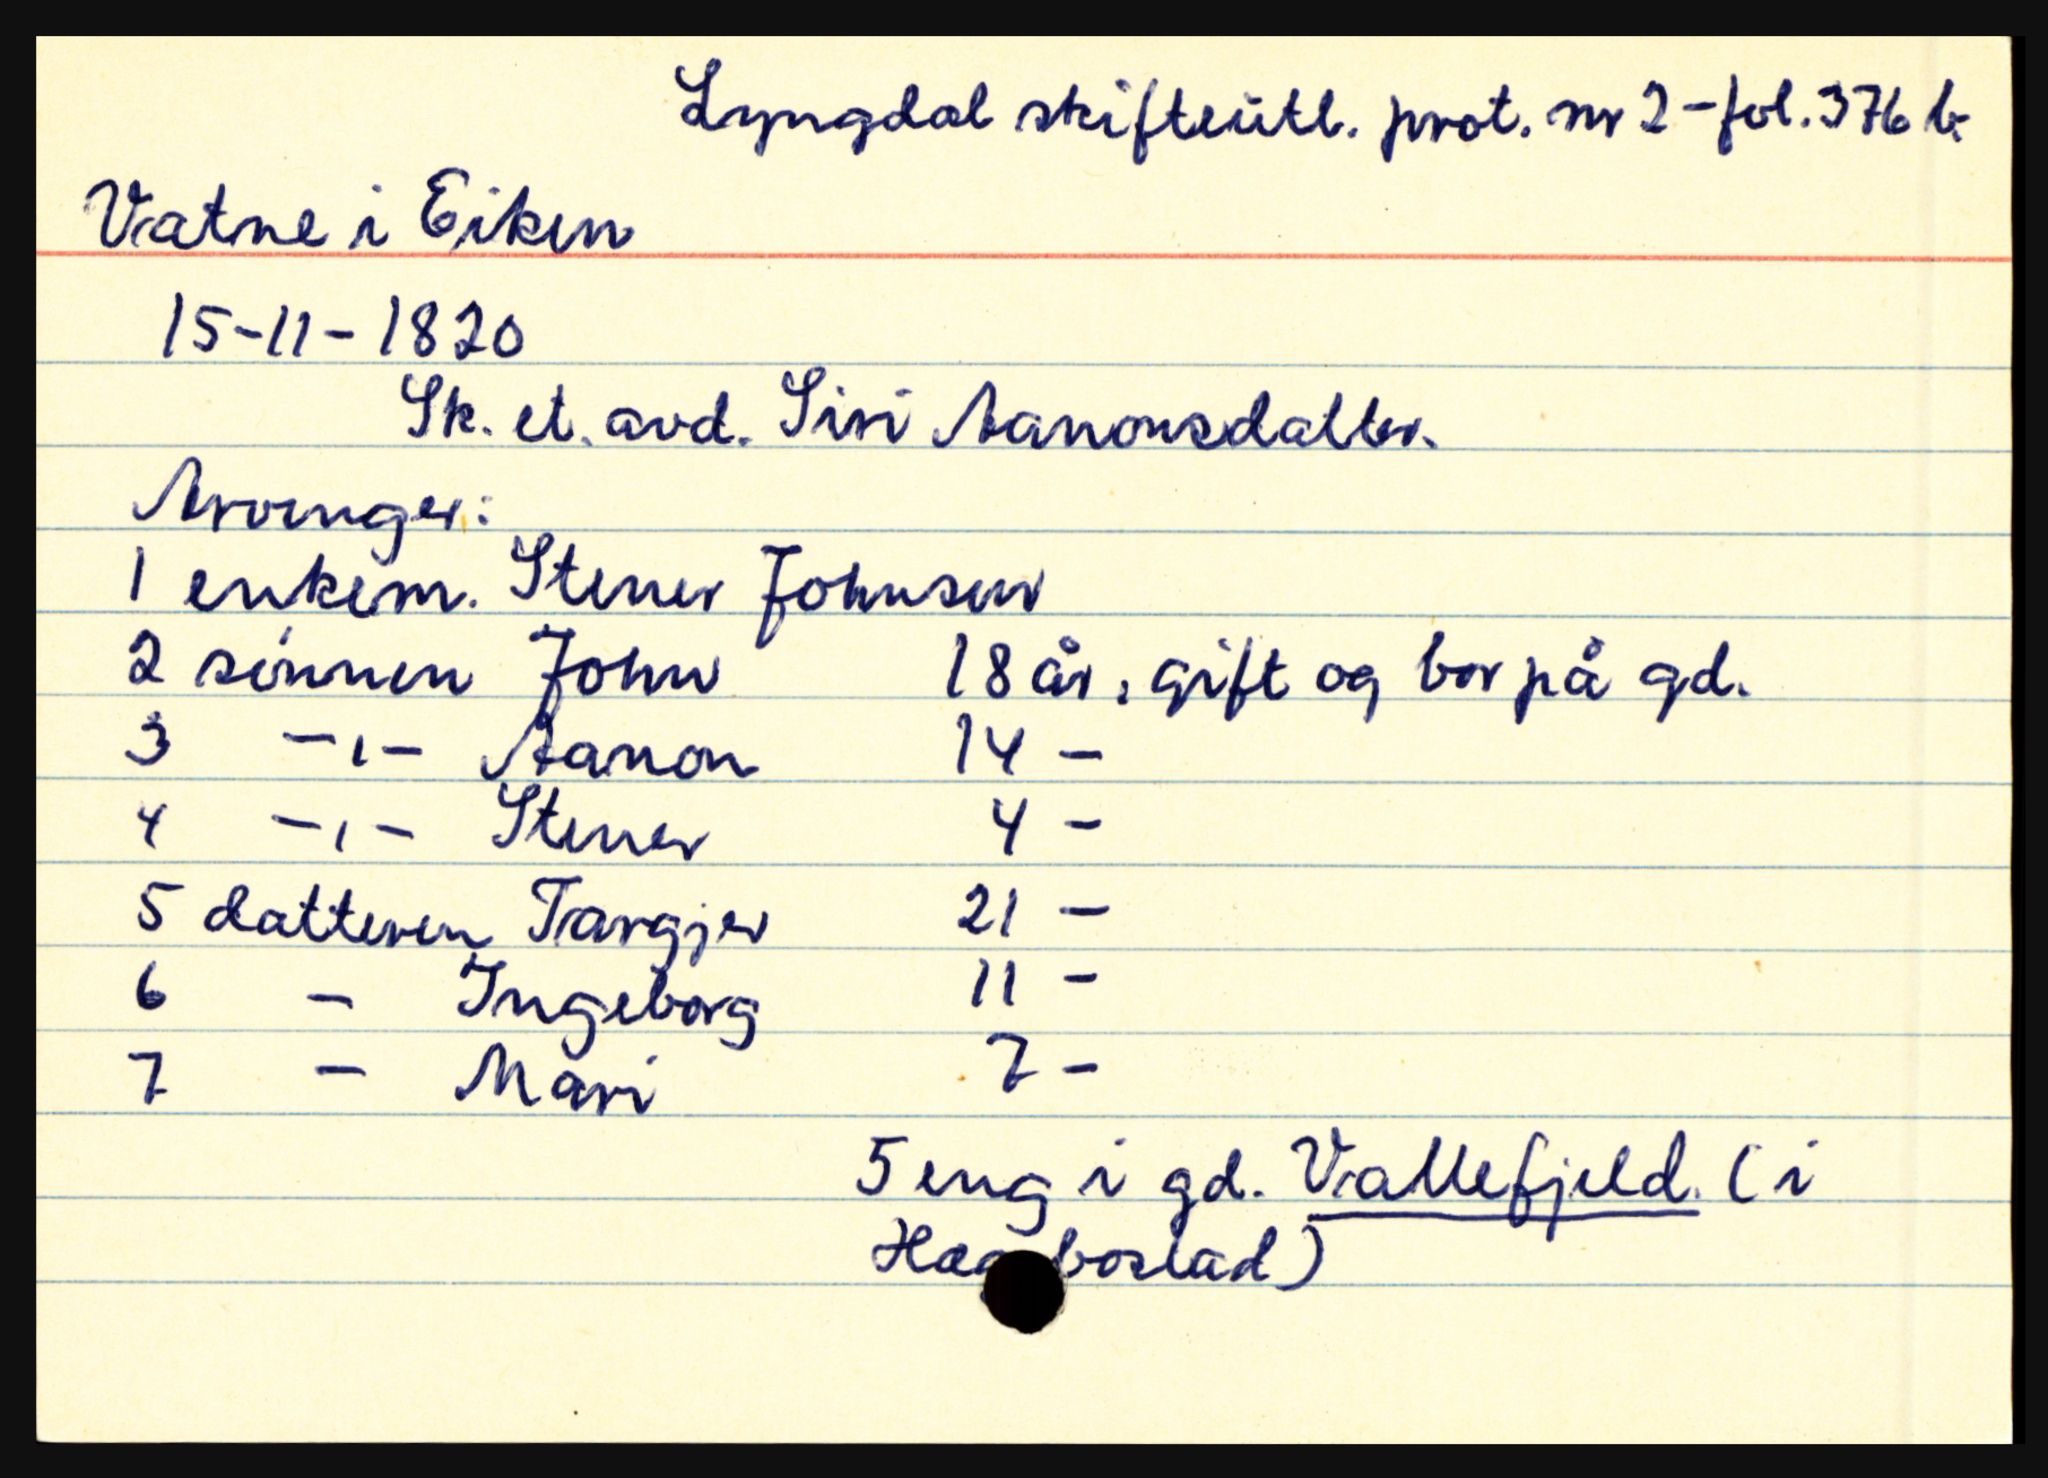 Lyngdal skifteutl. prot. nr 2 - fol. 376 b.
Vatne i Eiken
15-11-1820
Sk. et. avd. Siri Aanonsdatter.
Arvinger:
1 enkem. Stener Johnsen
2 sønnen John 18 år, gift og bor på gd.
3 -,- Aanon 14 -
4 -,- Stener 4 -
5 datteren Targjer 21 -
6 - Ingeborg 11 -
7 - Mari 7 -
5 eng i gd. Vallefjeld. (i
Hægebostad)